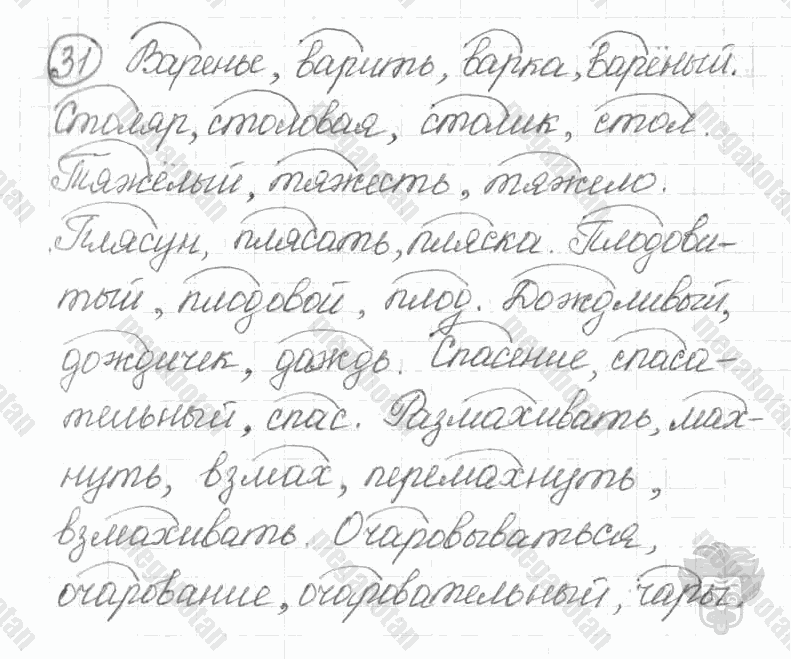 31 Варенье, варить, варка, варёный.
Столяр, столовая, столик, стол.
Тяжёлый, тяжесть, тяжело.
Плясун, плясать, пляска. Плодови-
тый, плодовой, плод. Дождливый,
дождичек, даждь. Спасение, спаса-
тельный, спас. Размахивать, мах-
нуть, взмах, перемахнуть,
взмахивать. Очаровываться,
очарование, очаровательный, чары.
megabotan